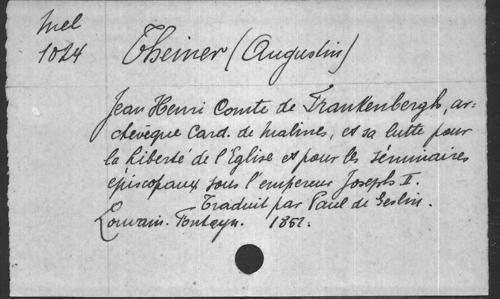 Mel
1024
Theiner (Augustin)
Jean Henri Comte de Frankenbergh, ar-
chevêque Card. de Malines, et sa lutte pour
la liberté de l'Eglise et pour les séminaires
épiscopaux sous l'empereur Joseph II.
Traduit par Paul de Geslin.
Louvain. Fonteyn. 1852.